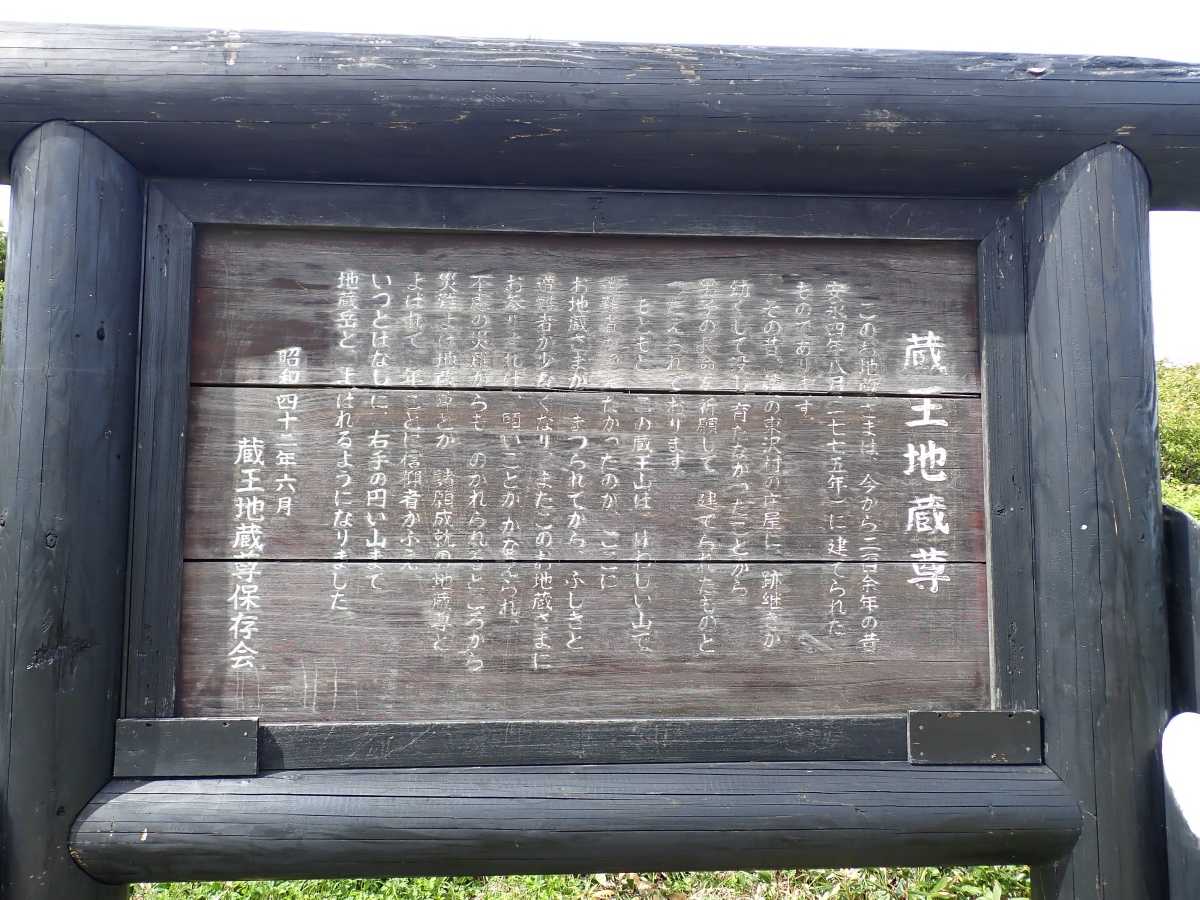 蔵王地蔵尊
このお地蔵さまは、今から二百余年の昔
安永四年八月(一七七五年)に建てられた
ものであります。
その昔、の東沢村の庄屋に、跡継ぎが
幼くして没し育たなかったことから
の長命を祈願して、建てられたものと
つたえられております
もともと、この蔵王山は、けわしい山で
遭難者がたかったのが、ここに
お地蔵さまが、まつられてから、ふしぎと
遭難者が少なくなり、またこのお地蔵さまに
お参りすれば、願いごとがかなえられ、
不慮の災難からも、のがれられるところから
災難よけ地蔵尊とか、諸願成就の地蔵尊と
よばれて、年ごとに信仰者がふえ、
いつとはなしに、右手の円い山まで
地蔵岳と、よばれるようになりました
昭和四十二年六月
蔵王地蔵尊保存会